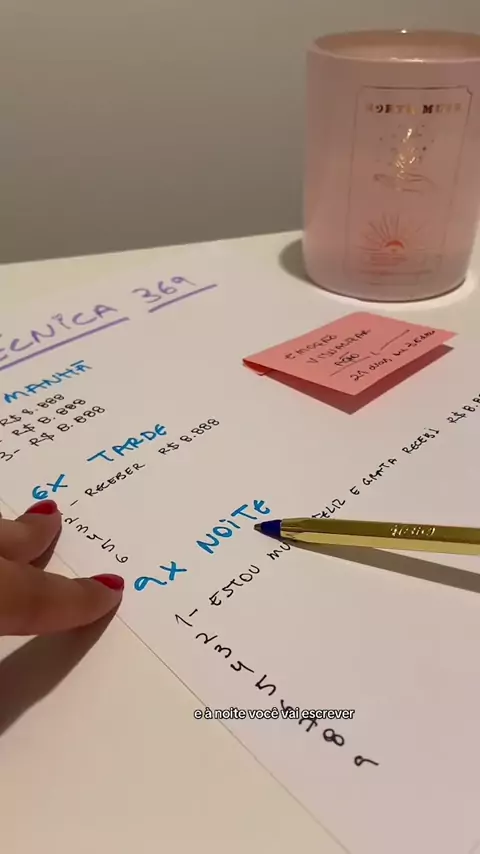 TÉCNICA 369
MANHÃ
R$ 8.888
- R$ 8.888
3- R$ 8.888
6X TARDE
- RECEBER R$ 8.888
2
3
4
5
6
9X NOITE
1- ESTOU FELIZ E GRATA RECEBI R$ 8.8
2
3
4
5
6
7
8
9
EMOÇÃO
VISUALIZAR
NÃO
21 dias
NORTH MUSE
e à noite você vai escrever